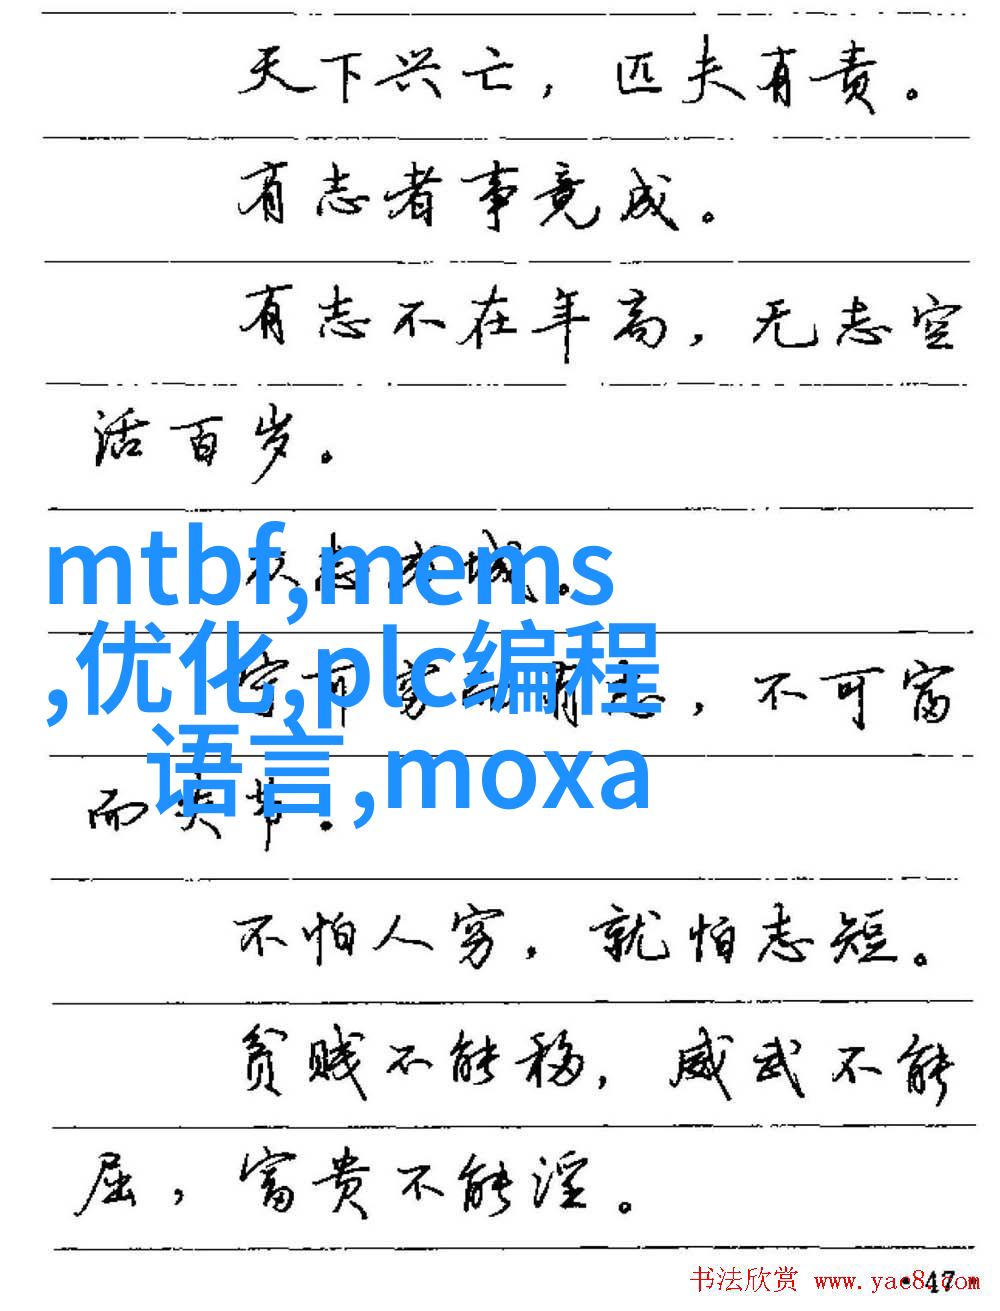 天下兴亡，匹夫有责。
有志者事竟成。
有志不在年高，无志空
活百岁。
mtbf,mems
众志成城。
,优化,plc编程
宁可穷而有志，不可富
语言,moxa
而失节。
不怕人穷，就怕志短。
贫贱不能移，威武不能
屈，富贵不能淫。
书法欣赏 www.yac8.com
·47·